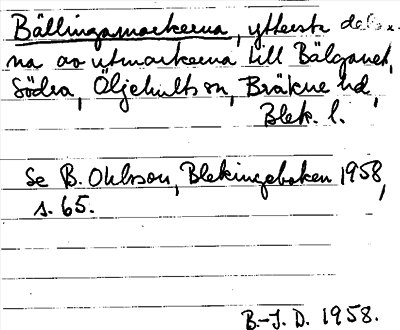 Bällingamarkerna, yttersta delar-
na av utmarkerna till Bälganet,
Södra, Öljehults sn, Bräkne hd,
Blek. l.
Se B. Ohlsson, Blekingeboken 1958,
s. 65.
B.-J. D. 1958.